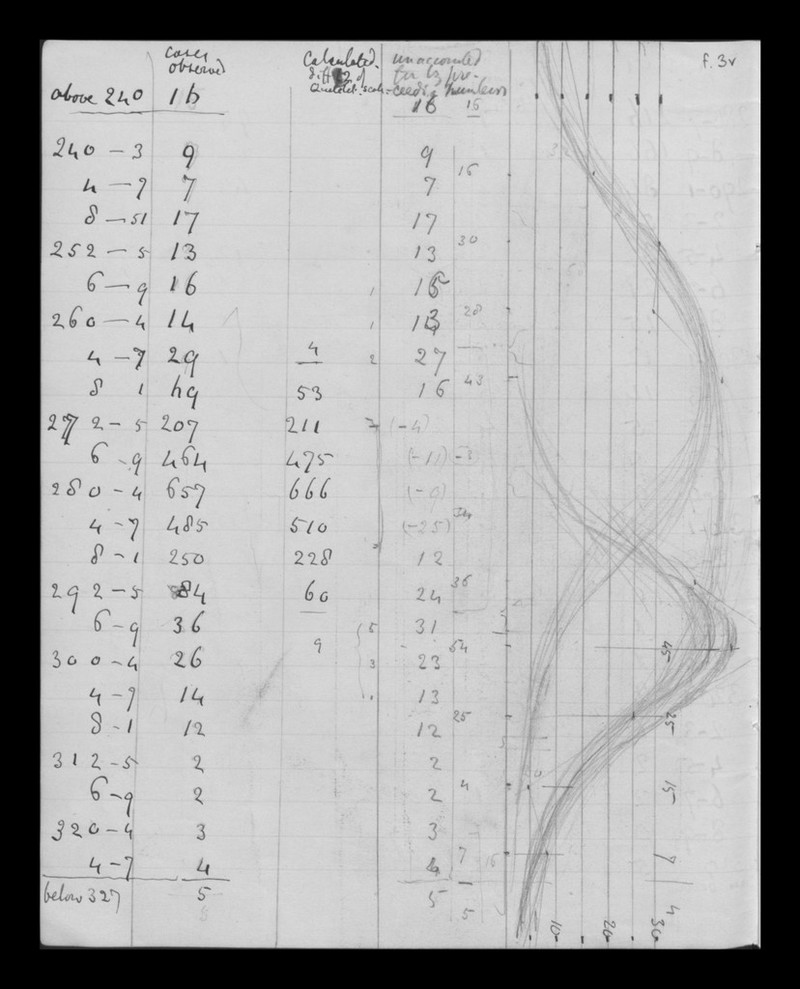 f. 3v
cases observed
Calculated diff of Quetelet scale
unaccounted for by preceeding numbers
above 240 16 16 16
240 – 3 9 9
16
4 – 7 7 7
8 – 51 17 17
30
252 – 5 13 13
6 – 9 16 1 16
28
260 – 4 14 1 13
4 – 7 29 4 2 27
43
8 1 49 53 16
272 – 5 207 211 7 (-4)
6 – 9 464 475 (-11) -3
280 – 4 657 666 (-9)
4 – 7 485 510 (-25)
8 – 1 250 228 12
36
292 – 5 84 60 24
6 – 9 36 5 31
9 54
300 – 4 26 3 23
45
4 – 7 14 13
25 25
8 – 1 12 12
312 – 5 2 2
4 15
6 – 9 2 2
320 – 4 3 3
7 16 7
4 – 7 4 4
below 327 5 5 5
4
10 20 30